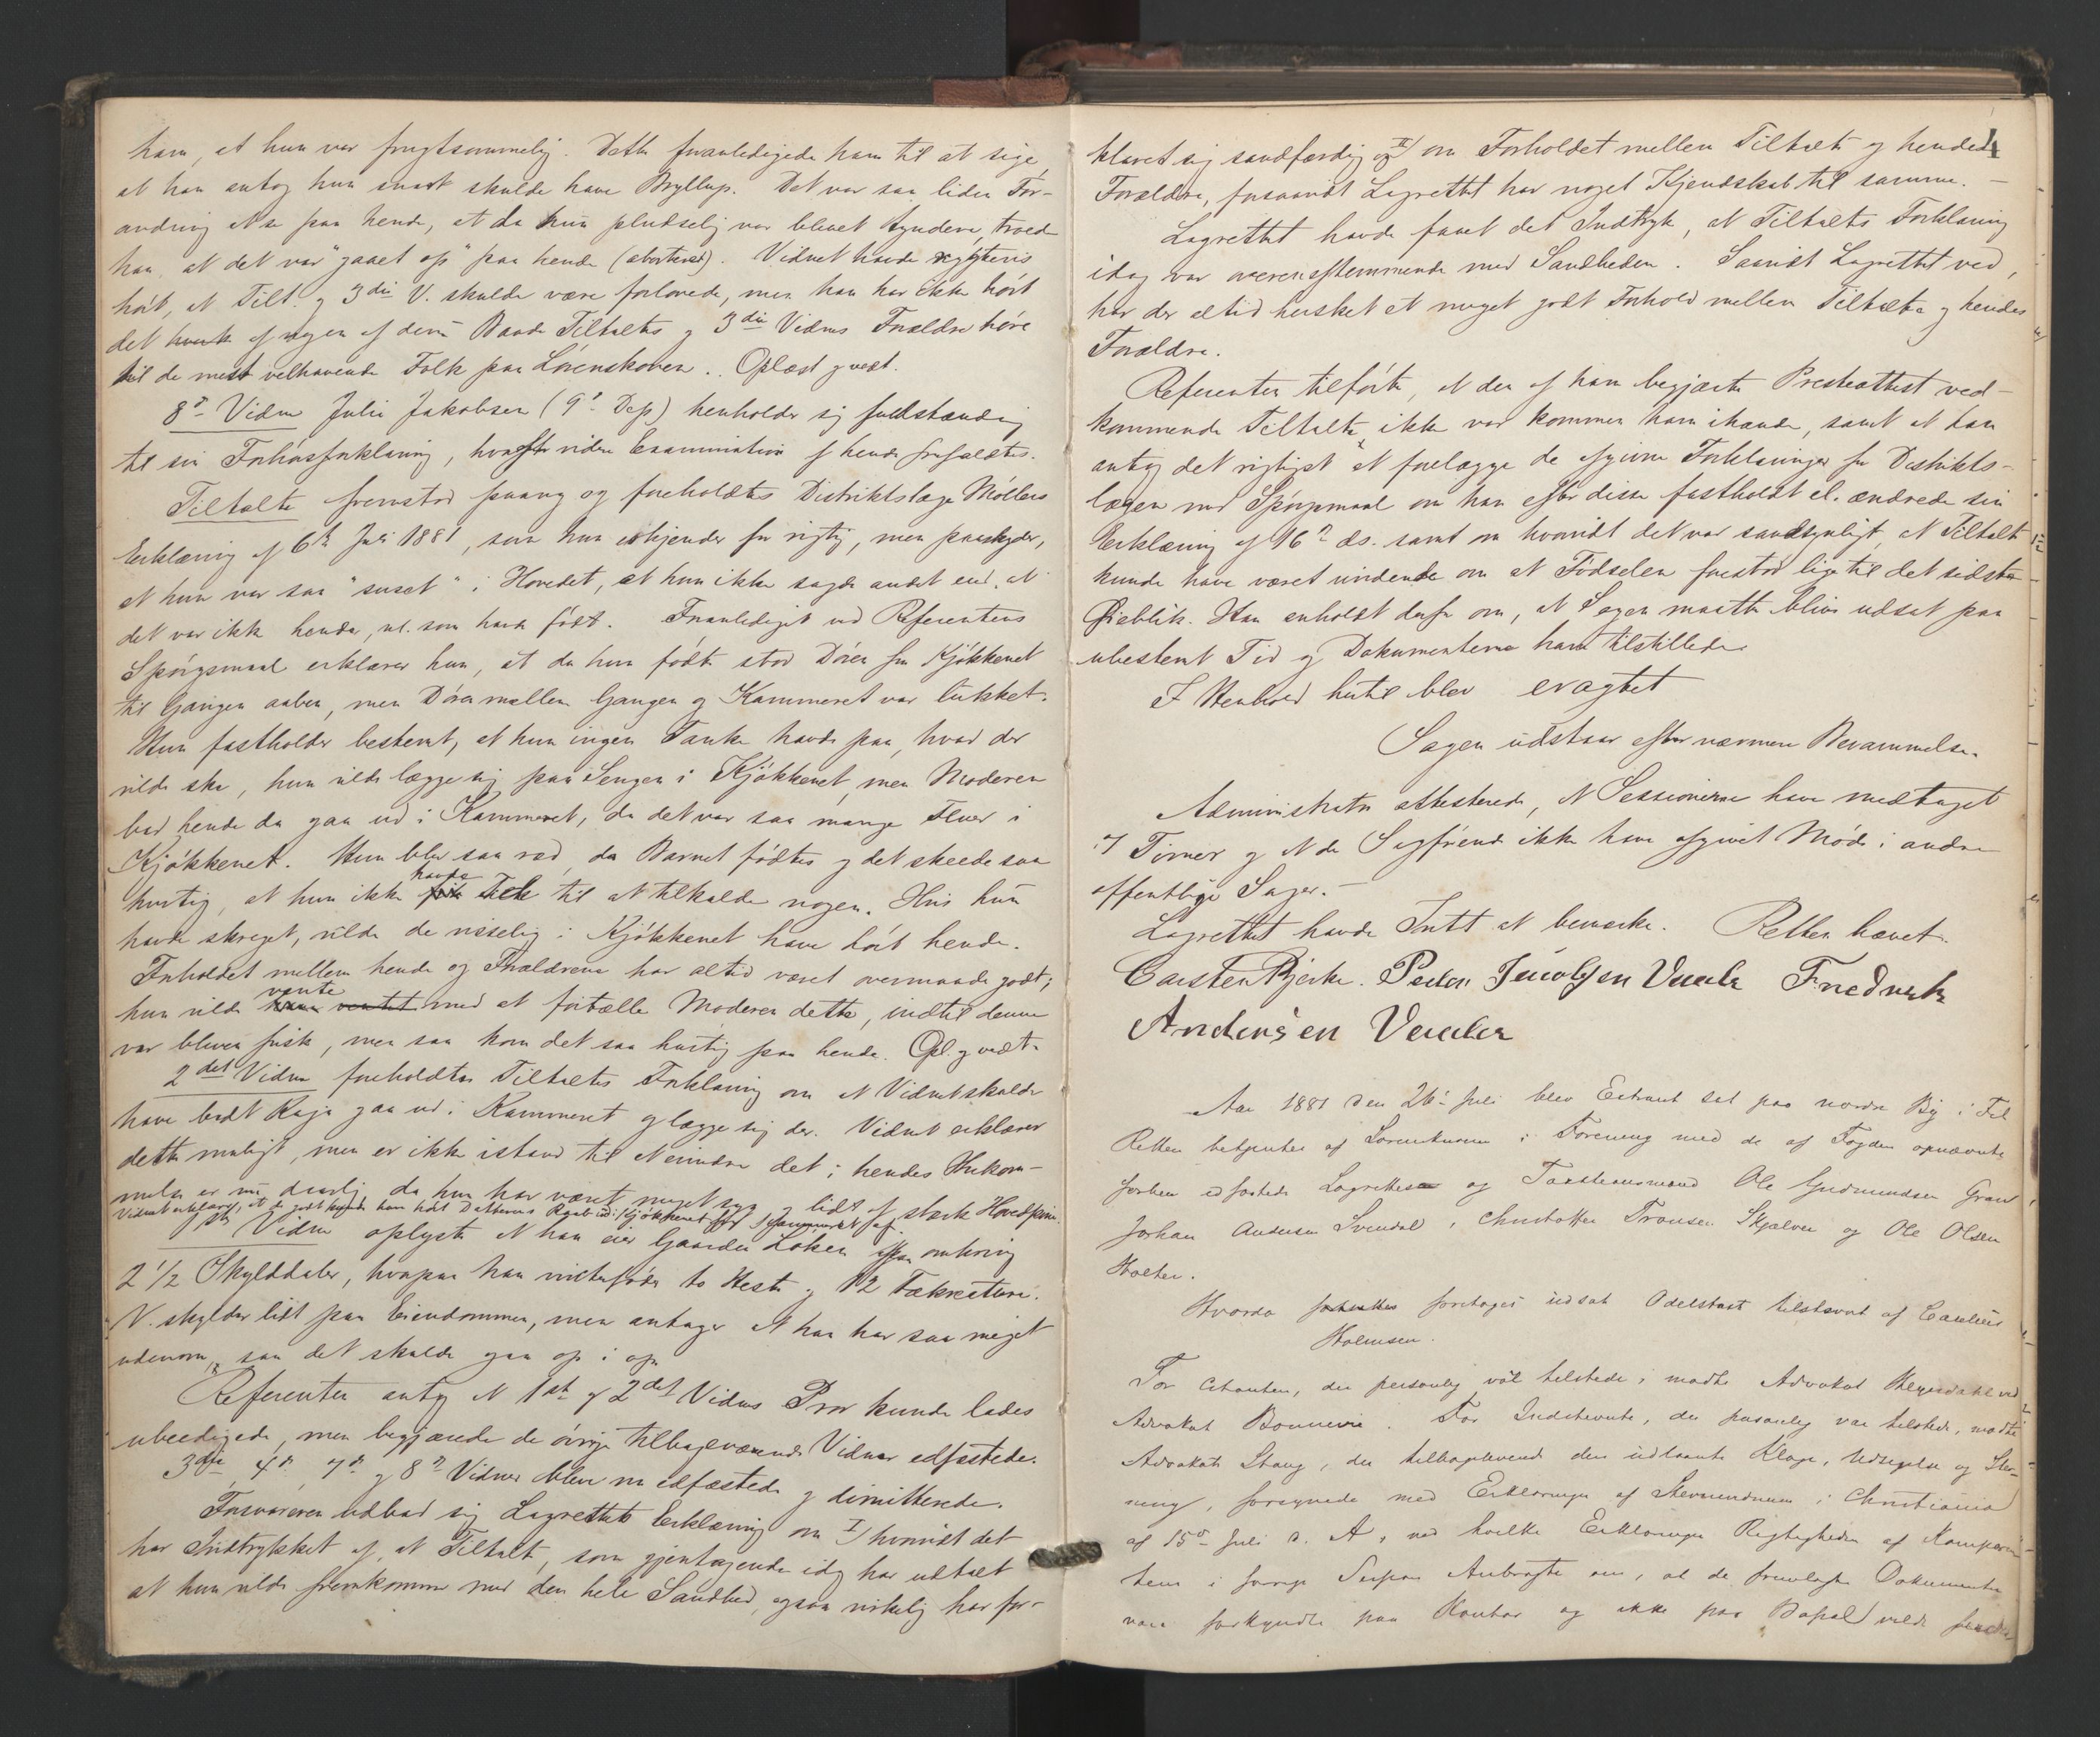 ham, at hun var frugtsommelig. Dette foranledigede ham til at sige
at han antog hun snart skulde have Bryllup. Det var saa liden For-
andring at se paa hende, at da hun pludselig var blevet tyndere, troede
han, at det var "gaaet op" paa hende (aborteret). Vidnet havde rygtevis
hørt, at Tilt. og 3die V. skulde være forlovede, men han har ikke hørt
det af nogen af dem. Baade Tiltaltes og 3die Vidnes Forældre høre
til de mest velhavende Folk paa Lørenskoven. Oplæst og vedt.
8de Vidne Julie Jakobsen (9de Dep) henholder sig fuldstændig
til sin Forhørsforklaring, hvorefter videre Examination af hende frafaldtes.
Tiltalte fremstod paany og foreholdtes Distriktslæge Møllers
Erklæring af 6te Juli 1881, som hun erkjender for rigtig, men paaskyder,
at hun var saa "suset" i Hovedet, at hun ikke sagde andet end, at
det var ikke hende, nl. som havde født. Foranlediget ved Referentens
Spørgsmaal erklærer hun, at da hun fødte stod Døren fra Kjøkkenet
til Gangen aaben, men Døren mellem Gangen og Kammeret var lukket.
Hun fastholder bestemt, at hun ingen Tanke havde paa, hvad der
vilde ske, hun vilde lægge sig paa Sengen i Kjøkkenet, men Moderen
bad hende da gaa ud i Kammeret, da det var saa mange Fluer i
Kjøkkenet. Hun blev saa ræd, da Barnet fødtes og det skeede saa
hurtig, at hun ikke havde Tid til at tilkalde nogen. Hvis hun
havde skreget, vilde de visselig i Kjøkkenet have hørt hende.
Forholdet mellem hende og Forældrene har altid været overmaade godt;
hun vilde vente med at fortælle Moderen dette, indtil denne
var bleven frisk, men saa kom det saa hurtig paa hende. Opl. og vedt.
2det Vidne foreholdtes Tiltaltes Forklaring om at Vidnet skulde
have bedt Kaja gaa ud i Kammeret og lægge sig der. Vidnet erklærer
dette muligt, men er ikke istand til at erindre det; hendes Hukom-
melse er nu daarlig, da hun har været meget syg og lidt af stærk Hovedpine.
Vidnet erklærer, at
1ste Vidne oplyste at han eier Gaarden Løken af Skyld omkring
2 1/2 Skylddaler, hvorpaa han vinterføder to Heste og 12 Fækreature.
V. skylder lidt paa Eiendommen, men antager at han har saa meget
udenom, saa det skulde gaa op i op
Referenten antog at 1ste og 2det Vidnes Prov kunde lades
ubeedigede, men begjærede de øvrige tilbageværende Vidner edfæstede.
3die, 4de, 7de og 8de Vidner blev nu edfæstede og dimitterede.
Forsvareren udbad sig Lagrettets Erklæring om I) hvorvidt det
har Indtrykket af, at Tiltalte, som gjentagende idag har udtalt
at hun vilde fremkomme med den hele Sandhed, ogsaa virkelig har for-
4
klaret sig sandfærdig og II) om Forholdet mellem Tiltalte og hendes
Forældre, forsaavidt Lagrettet har noget Kjendskab til samme. —
Lagrettet havde faaet det Indtryk, at Tiltaltes Forklaring
idag var overensstemmende med Sandheden. Saavidt Lagrettet ved,
har der altid hersket et meget godt Forhold mellem Tiltalte og hendes
Forældre.
Referenten tilførte, at den af ham begjærte Presteattest ved-
kommende Tiltalte ikke var kommen ham ihænde, samt at han
antog det rigtigst at forelægge de afgivne Forklaringer for Distrikts-
lægen med Spørgsmaal om han efter disse fastholdt el. ændrede sin
Erklæring af 16de ds. samt om hvorvidt det var sandsynligt, at Tiltalte
kunde have været uvidende om at Fødselen forestod lige til det sidste
Øieblik. Han anholdt derfor om, at Sagen maatte blive udsat paa
ubestemt Tid og Dokumenterne ham tilstillede.
I Henhold hertil blev eragtet
Sagen udstaar efter nærmere Berammelse.
Administrator attesterede, at Sessionerne have medtaget
7 Timer og at de Sagførende ikke have afgivet Møde i andre
offentlige Sager. —
Lagrettet havde Intet at bemærke. Retten hævet.
Carsten Bjerke. Peder Jacobsen Fredrik
Andersen
Aar 1881 den 26de Juli blev Extraret sat paa nordre By i
Retten betjentes af Sorenskriveren i Forening med de af Fogden opnævnte
forhen edfæstede Lagrettes og Taxtionsmænd Ole Gudmundsen Gran,
Johan Andersen Svendal, Christoffer Skjælver og Ole Olsen
Holter.
Hvorda foretages udsat Odelstaxt tilstevnt af
Holmsen.
For Citanten, der personlig var tilstede, mødte Advokat ved
Advokat Bonnevie. For Indstevnte, der personlig var tilstede, mødte
Advokat Stang, der tilbageleverede den udlaante Klage, Udsigelse og Stev-
ning, forsynede med Erklæringer af Stevnevidnerne i Christiania
af 15de Juli d. A., ved hvilke Erklæringer Rigtigheden af Komparen-
tens i forrige Session Anbragte om, at de fremlagte Dokumenter
vare forkyndte paa Kontor og ikke paa Bopæl vilde